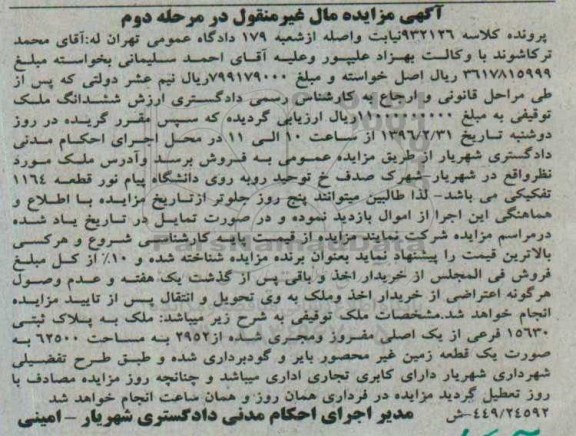 آگهی مزایده مال غیرمنقول در مرحله دوم
پرونده کلاسه ۹۳۲۱۲۶نیابت واصله ازشعبه ۱۷۹ دادگاه عمومی تهران له:آقای محمد
ترکاشوند با وکالت بهزاد علیپور وعلیه آقای احمد سلیمانی بخواسته مبلغ
۳۶۱۷۸۱۵۹۹۹ ریال اصل خواسته و مبلغ ۷۹۹۱۷۹۰۰۰ریال نیم عشر دولتی که پس از
طی مراحل قانونی و ارجاع به کارشناس رسمی دادگستری ارزش ششدانگ ملک
توقیفی به مبلغ ریال ارزیابی گردیده که سپس مقرر گریده در روز
دوشنبه تاریخ ۱۳۹۶/۲/۳۱ از ساعت ۱۰ الی ۱۱ در محل اجرای احکام مدنی
دادگستری شهریار از طریق مزایده عمومی به فروش برسد وآدرس ملک مورد
نظرواقع در شهریار-شهرک صدف خ توحید روبه روی دانشگاه پیام نور قطعه ۱۱۶۴
تفکیکی می باشد- لذا طالبین میتوانند پنج روز جلوتر ازتاریخ مزایده با اطلاع و
هماهنگی این اجرا از اموال بازدید نموده و در صورت تمایل در تاریخ یاد شده
درمراسم مزایده شرکت نمایند مزایده از قیمت پایه کارشناسی شروع و هرکسی
بالاترین قیمت را پیشنهاد نماید بعنوان برنده مزایده شناخته شده و ۱۰٪ از کل مبلغ
فروش فی المجلس از خریدار اخذ و باقی پس از گذشت یک هفته و عدم وصول
هرگونه اعتراضی از خریدار اخذ وملک به وی تحویل و انتقال پس از تایید مزایده
انجام خواهد شد.مشخصات ملک توقیفی به شرح زیر میباشد: ملک به پلاک ثبتی
۱۵۶۳۰ فرعی از یک اصلی مفروز ومجری شده از۲۹۵۲ به مساحت ۶۲۵۰۰ به
صورت یک قطعه زمین غیر محصور بایر و گودبرداری شده و طبق طرح تفضیلی
شهرداری شهریار دارای کابری تجاری اداری میباشد و چنانچه روز مزایده مصادف با
روز تعطیل گردید مزایده در فرداری همان روز و همان ساعت انجام خواهد شد
۴۴۹/۲۴۵۹۲-ش مدیر اجرای احکام مدنی دادگستری شهریار - امینی
ParsNamadData